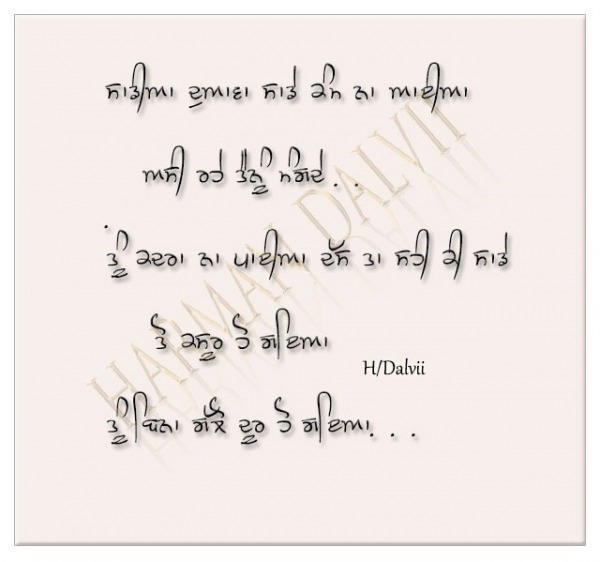 ਸਾਡੀਆ ਦੁਆਵਾ ਸਾਡੇ ਕੰਮ ਨਾ ਆਈਆ
ਅਸੀ ਰਹੇ ਤੈਨੂੰ ਮੰਗਦੇ . .
ਤੂੰ ਕਦਰਾ ਨਾ ਪਾਈਆ ਦੱਸ ਤਾ ਸਹੀ ਕੀ ਸਾਡੇ
ਤੋ ਕਸੂਰ ਹੋ ਗਇਆ
H/Dalvii
ਤੂੰ ਬਿਨਾ ਗੱਲੋ ਦੂਰ ਹੋ ਗਇਆ. . .
HARMAN DALVII